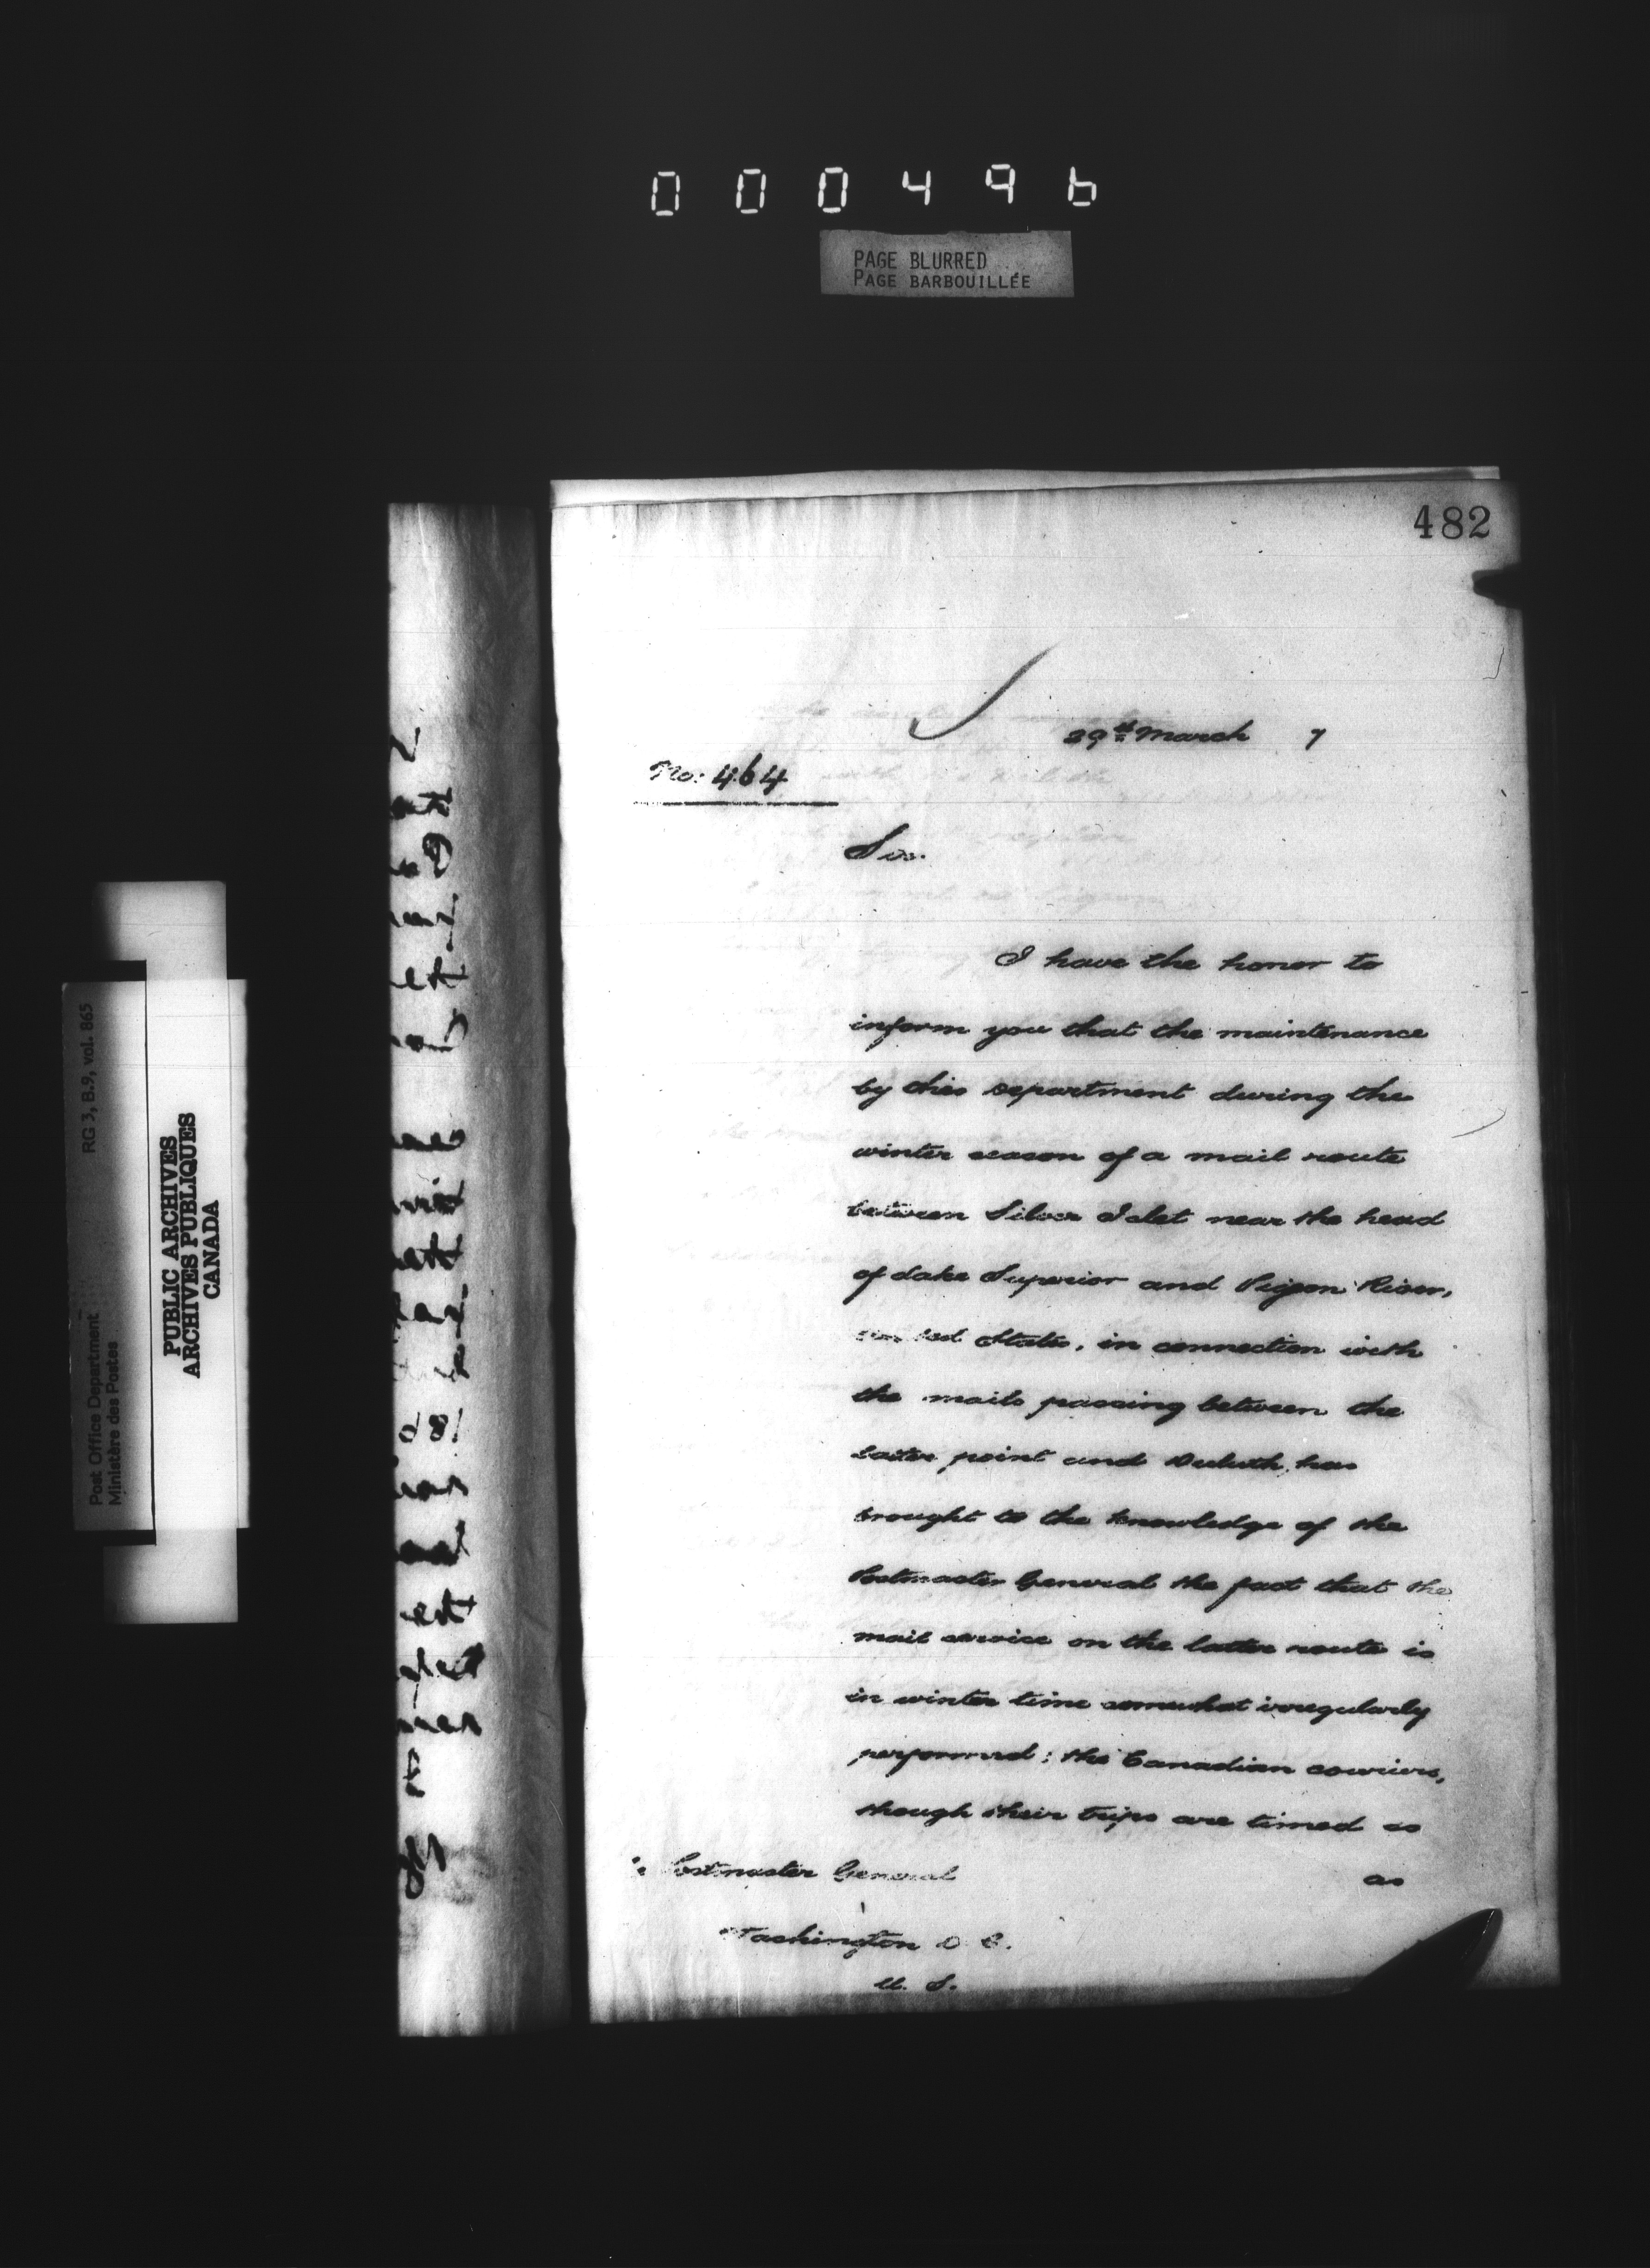 000496
PAGE BLURRED
PAGE BARBOUILLÉE
482
29th March 7
No: 464
Sir.
I have the honor to
inform you that the maintenance
by this Department during the
winter season of a mail route
between Silver Islet near the head
of Lake Superior and Pigeon River,
United States, in connection with
the mails passing between the
latter point and Duluth, has
brought to the knowledge of the
Postmaster General the fact that the
mail service on the latter route is
in winter time somewhat irregularly
performed; the Canadian couriers,
though their trips are timed as
as
Postmaster General
Washington D. C.
U. S.
RG 3, B.9, vol. 865
Post Office Department
Ministère des Postes
PUBLIC ARCHIVES
ARCHIVES PUBLIQUES
CANADA